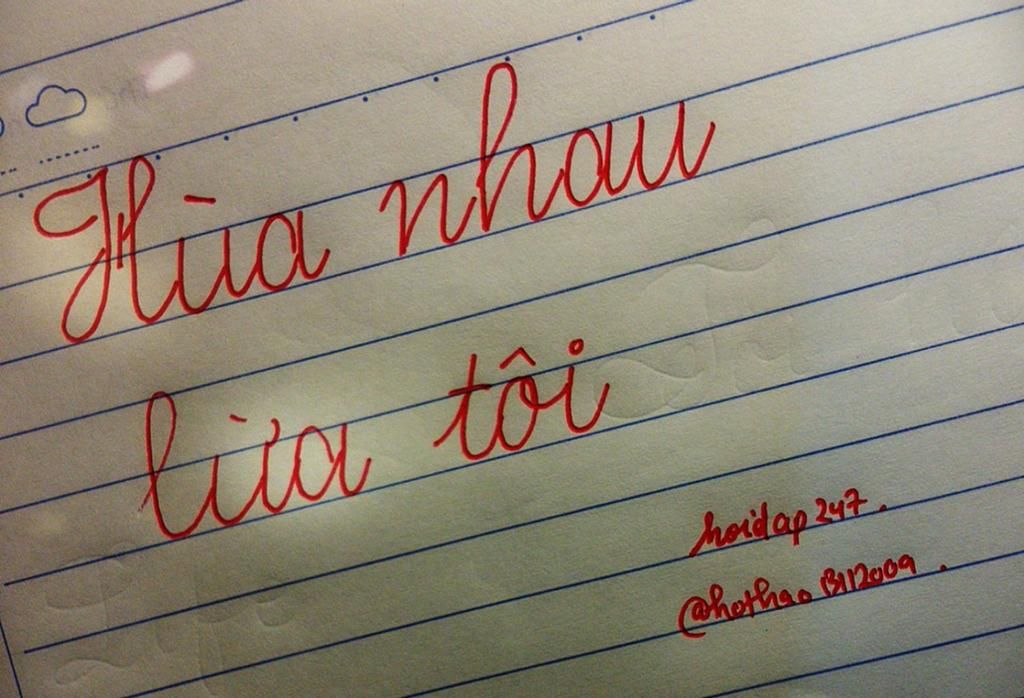 Hùa nhau
lừa tôi
hoidap247.
@hothao13112009.